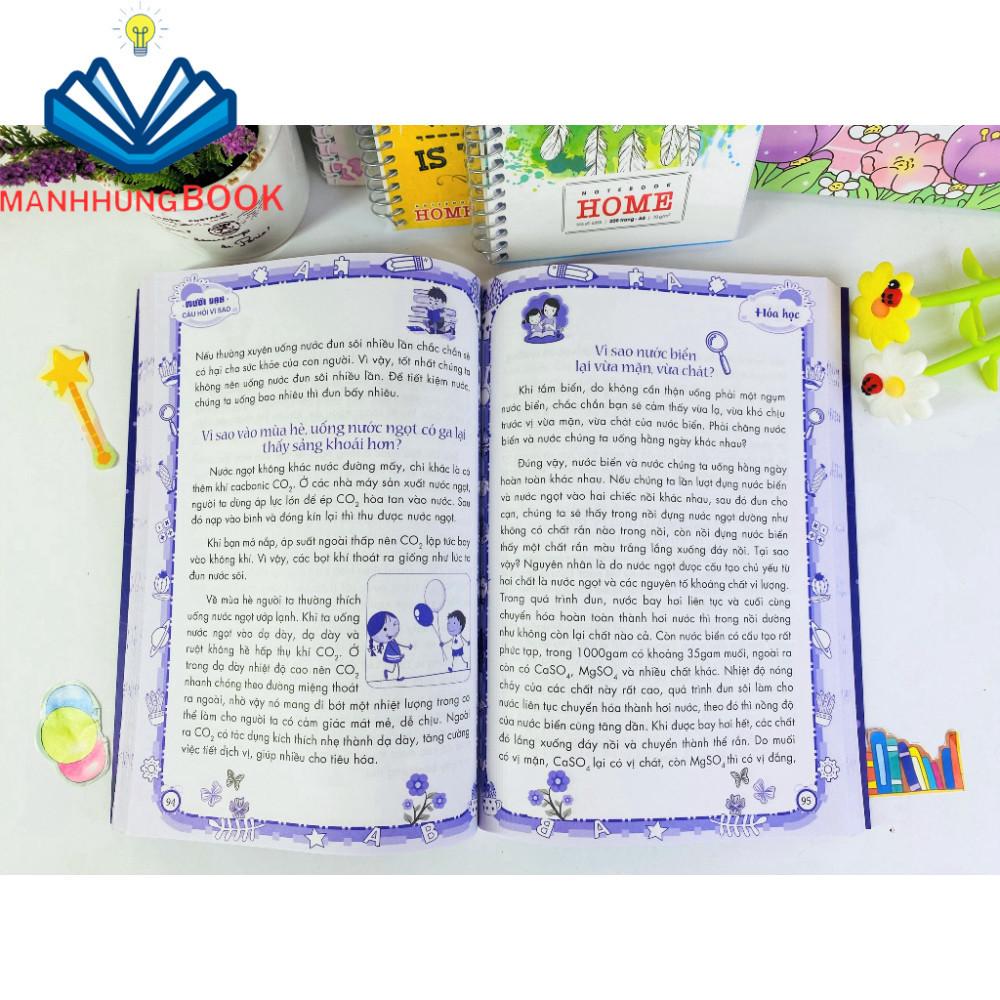 MANHHUNGBOOK
IS
HOME
NOTEBOOK
HOME
MƯỜI VẠN
CÂU HỎI VÌ SAO
Nếu thường xuyên uống nước đun sôi nhiều lần chắc chắn sẽ
có hại cho sức khỏe của con người. Vì vậy, tốt nhất chúng ta
không nên uống nước đun sôi nhiều lần. Để tiết kiệm nước,
chúng ta uống bao nhiêu thì đun bấy nhiêu.
Vì sao vào mùa hè, uống nước ngọt có ga lại
thấy sảng khoái hơn?
Nước ngọt không khác nước đường mấy, chỉ khác là có
thêm khí cacbonic CO2. Ở các nhà máy sản xuất nước ngọt,
người ta dùng áp lực lớn để ép CO2 hòa tan vào nước. Sau
đó nạp vào bình và đóng kín lại thì thu được nước ngọt.
Khi bạn mở nắp, áp suất ngoài thấp nên CO2 lập tức bay
vào không khí. Vì vậy, các bọt khí thoát ra giống như lúc ta
đun nước sôi.
Về mùa hè người ta thường thích
uống nước ngọt ướp lạnh. Khi ta uống
nước ngọt vào dạ dày, dạ dày và
ruột không hề hấp thụ khí CO2. Ở
trong dạ dày nhiệt độ cao nên CO2
nhanh chóng theo đường miệng thoát
ra ngoài, nhờ vậy nó mang đi bớt một nhiệt lượng trong cơ
thể làm cho người ta có cảm giác mát mẻ, dễ chịu. Ngoài
ra CO2 có tác dụng kích thích nhẹ thành dạ dày, tăng cường
việc tiết dịch vị, giúp nhiều cho tiêu hóa.
94
Hóa học
Vì sao nước biển
lại vừa mặn, vừa chát?
Khi tắm biển, do không cẩn thận uống phải một ngụm
nước biển, chắc chắn bạn sẽ cảm thấy vừa lạ, vừa khó chịu
trước vị vừa mặn, vừa chát của nước biển. Phải chăng nước
biển và nước chúng ta uống hằng ngày khác nhau?
Đúng vậy, nước biển và nước chúng ta uống hằng ngày
hoàn toàn khác nhau. Nếu chúng ta lần lượt đựng nước biển
và nước ngọt vào hai chiếc nồi khác nhau, sau đó đun cho
cạn, chúng ta sẽ thấy trong nồi đựng nước ngọt dường như
không có chất rắn nào trong nồi, còn nồi đựng nước biển
thấy một chất rắn màu trắng lắng xuống đáy nồi. Tại sao
vậy? Nguyên nhân là do nước ngọt được cấu tạo chủ yếu từ
hai chất là nước ngọt và các nguyên tố khoáng chất vi lượng.
Trong quá trình đun, nước bay hơi liên tục và cuối cùng
chuyển hóa hoàn toàn thành hơi nước thì trong nồi dường
như không còn lại chất nào cả. Còn nước biển có cấu tạo rất
phức tạp, trong 1000gam có khoảng 35gam muối, ngoài ra
còn có CaSO4, MgSO4 và nhiều chất khác. Nhiệt độ nóng
chảy của các chất này rất cao, quá trình đun sôi làm cho
nước liên tục chuyển hóa thành hơi nước, theo đó thì nồng độ
của nước biển cũng tăng dần. Khi được bay hơi hết, các chất
đó lắng xuống đáy nồi và chuyển thành thể rắn. Do muối
có vị mặn, CaSO4 lại có vị chát, còn MgSO4 thì có vị đắng,
95